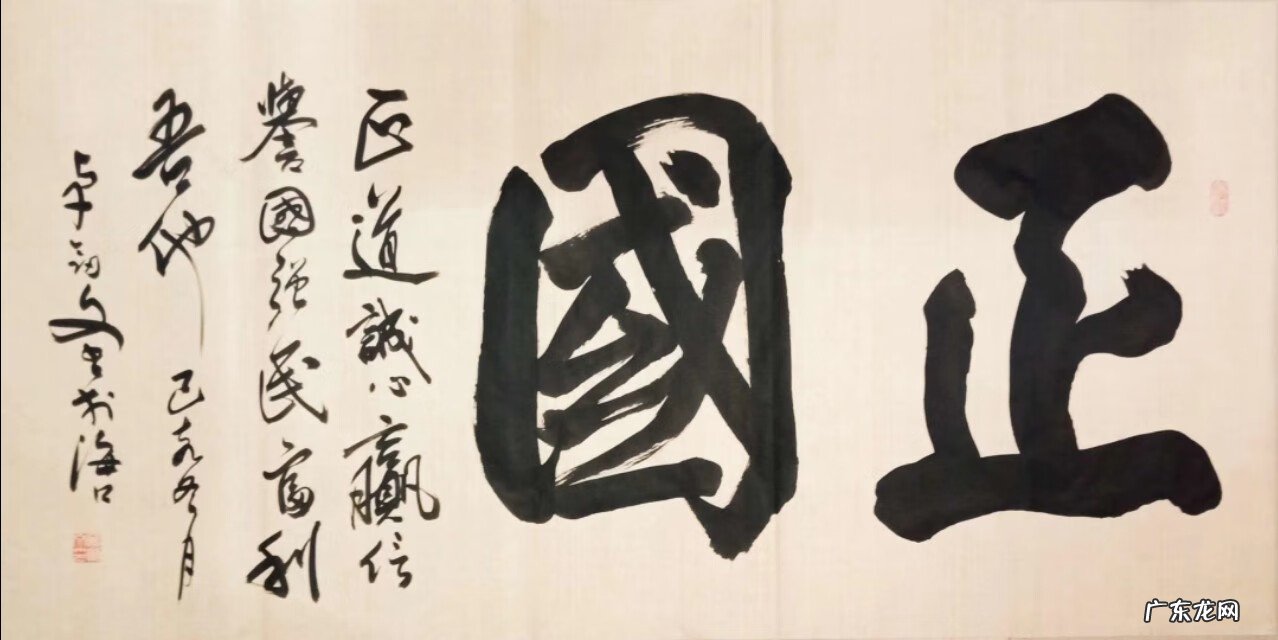 正國
正道誠心贏信
譽國強民富利
吾他 己亥五月
卓 文書於海口
广东龙网